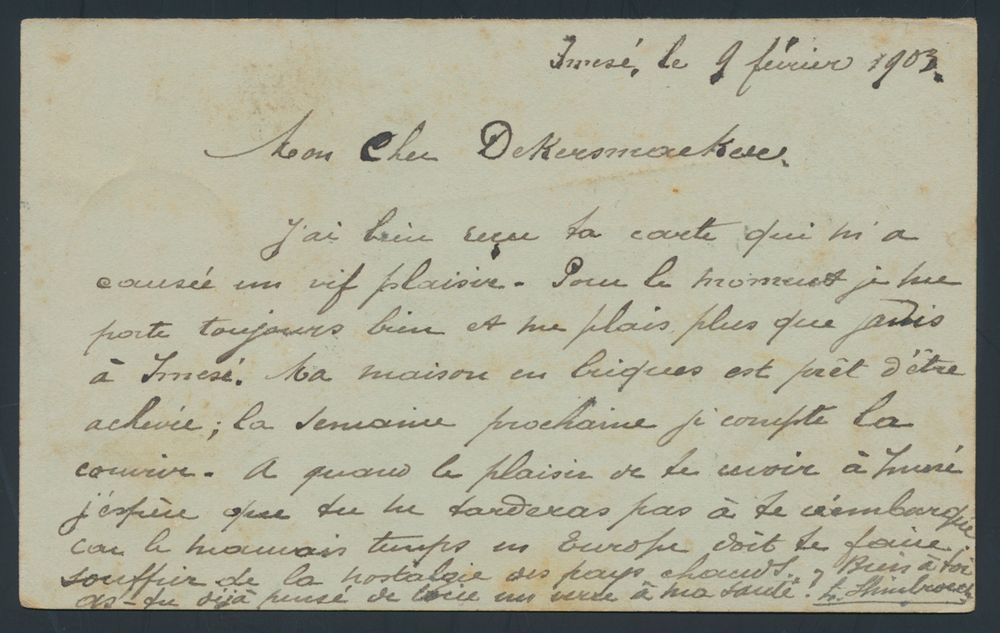 Imesé, le 9 février 1903.
Mon Cher Dekersmaeker.
J'ai bien reçu ta carte qui m'a
causée un vif plaisir. Pour le moment je me
porte toujours bien et me plais plus que jamais
à Imesé. Ma maison en briques est prêt d'être
achevée; la semaine prochaine je compte la
couvrir. A quand le plaisir de te revoir à Imesé
j'espère que tu ne tarderas pas à te réembarquer
car le mauvais temps en Europe doit te faire
souffrir de la nostalgie des pays chauds. Bien à toi
as-tu déjà pensé de boire un verre à ma santé?